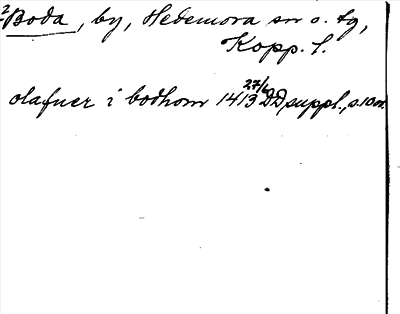 2 Boda, by, Hedemora sn o. tg,
Kopp. l.
olafuer i bodhom 1413 27/6 DD suppl., s.10